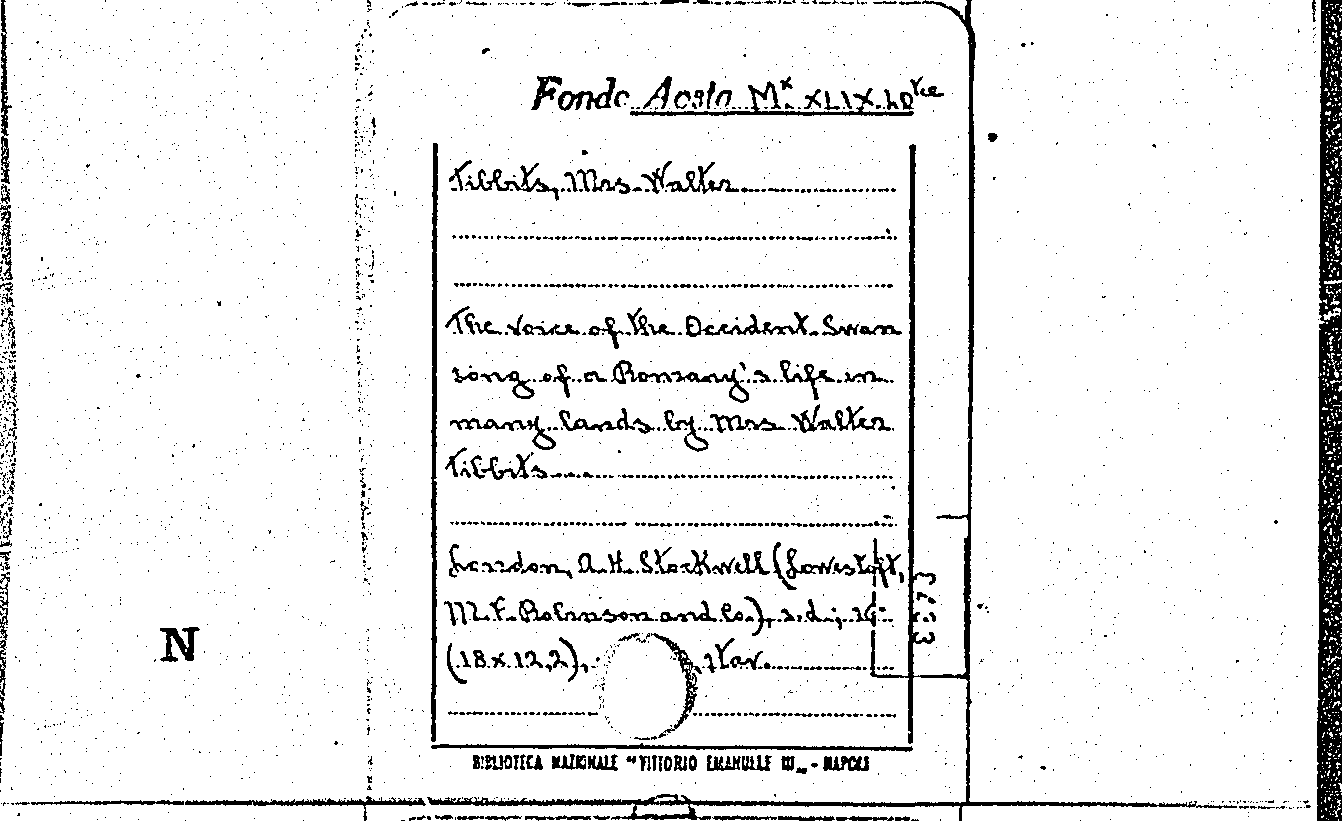 Fondo Aosta Mx. XLIX.40 ter
Tibbits, Mrs. Walter
The voice of the Occident. Swan
song of a Romany's life in
many lands by Mrs Walter
Tibbits
London, A.H. Stockwell (Lowestoft,
M.F. Robinson and Co.), s.d., 16°
(18x12,2), , tav.
N
BIBLIOTECA NAZIONALE "VITTORIO EMANUELE III„ - NAPOLI